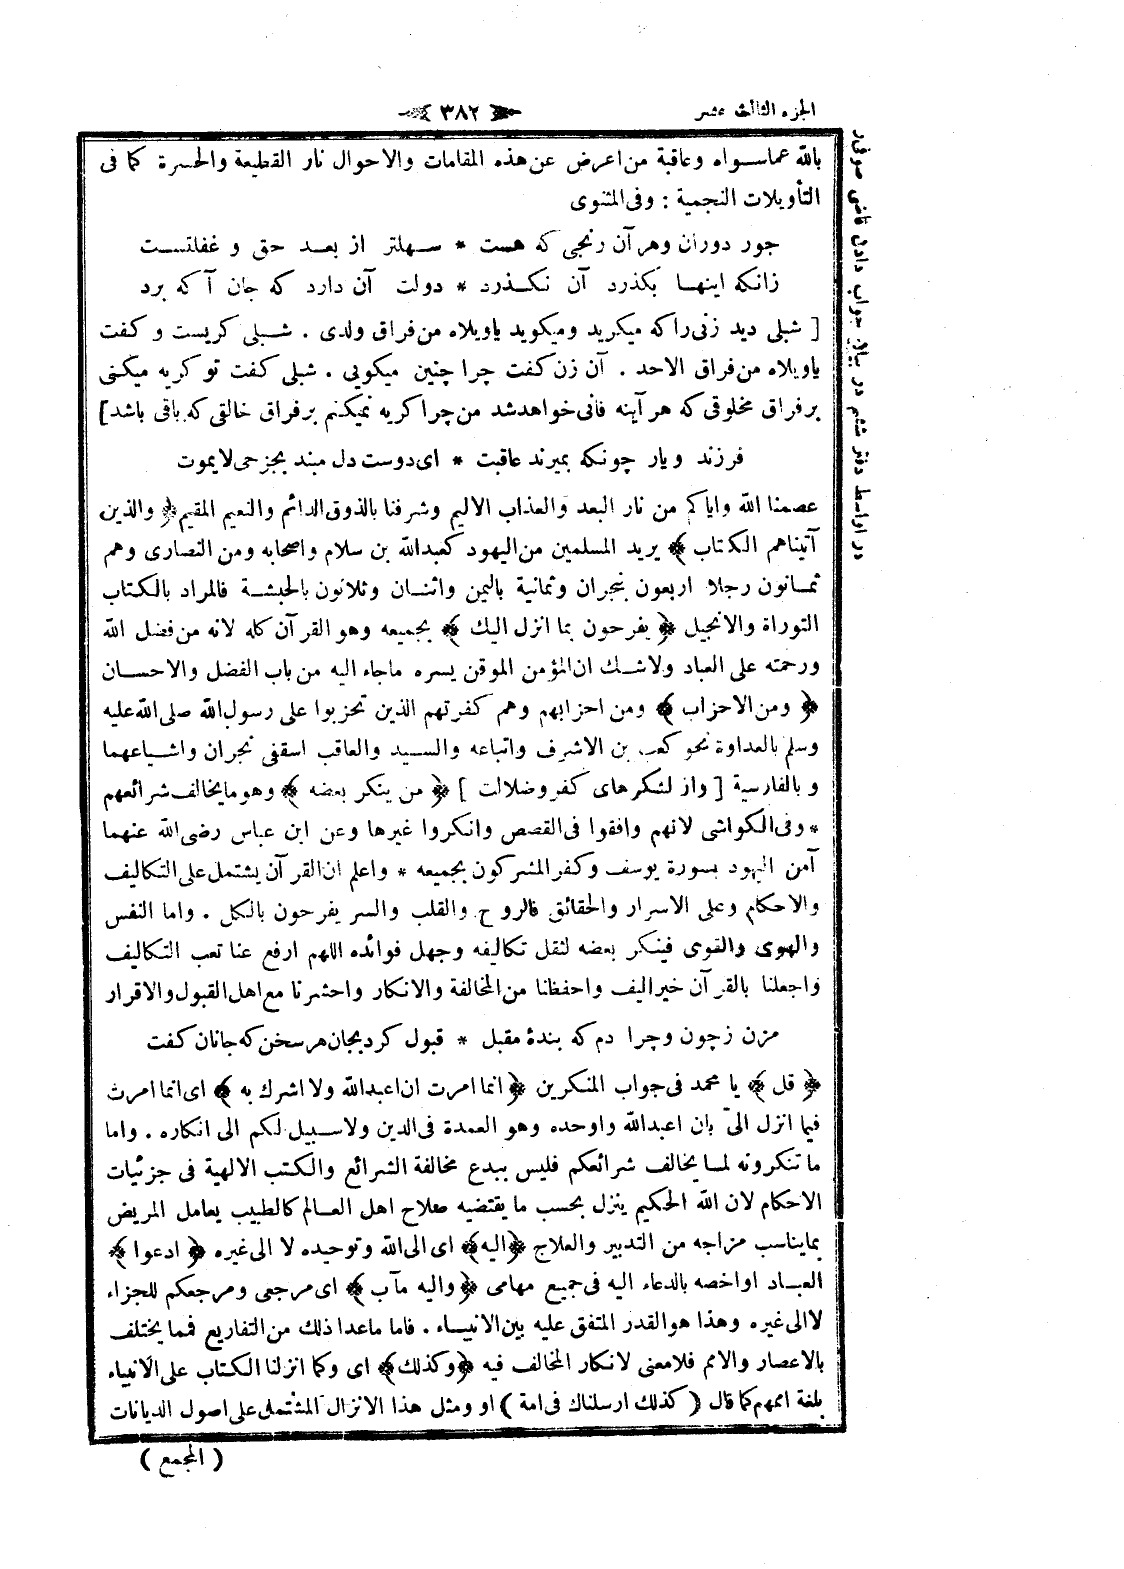 الجزء الثالث عشر
٣٨٢
بالله عماسواه وعاقبة من اعرض عن هذه المقامات والاحوال نار القطيعة والحسرة كما فى
التأويلات النجمية : وفى المثنوى
جور دوران وهر آن رنجى كه هست * سهلتر از بعد حق و غفلتست
زانكه اينها بكذرد آن نكذرد * دولت آن دارد كه جان آ كه برد
[ شبلى ديد زنى را كه ميكريد وميكويد ياويلاه من فراق ولدى . شبلى كريست و كفت
ياويلاه من فراق الاحد . آن زن كفت چرا چنين ميكويى . شبلى كفت تو كريه ميكنى
برفراق مخلوقى كه هر آينه فانى خواهدشد من چرا كريه نميكنم برفراق خالقى كه باقى باشد]
فرزند ويار چونكه بميرند عاقبت * اى دوست دل مبند بجزحى لايموت
عصمنا الله واياكم من نار البعد والعذاب الاليم وشرفنا بالذوق الدائم والنعيم المقيم ﴿ والذين
آتيناهم الكتاب ﴾ يريد المسلمين من اليهود كعبدالله بن سلام واصحابه ومن النصارى وهم
ثمانون رجلا اربعون بنجران وثمانية باليمن واثنان وثلاثون بالحبشة فالمراد بالكتاب
التوراة والانجيل ﴿ يفرحون بما انزل اليك ﴾ بجميعه وهو القرآن كله لانه من فضل الله
ورحمته على العباد ولاشك ان المؤمن الموقن يسره ماجاء اليه من باب الفضل والاحسان
﴿ ومن الاحزاب ﴾ ومن احزابهم وهم كفرتهم الذين تحزبوا على رسول الله صلى الله عليه
وسلم بالعداوة نحو كعب بن الاشرف واتباعه والسيد والعاقب اسقفى نجران واشياعهما
و بالفارسية [ واز لشكرهاى كفر وضلالت ] ﴿ من ينكر بعضه ﴾ وهو مايخالف شرائعهم
* وفى الكواشى لانهم وافقوا فى القصص وانكروا غيرها وعن ابن عباس رضى الله عنهما
آمن اليهود بسورة يوسف وكفر المشركون بجميعه * واعلم ان القرآن يشتمل على التكاليف
والاحكام وعلى الاسرار والحقائق فالروح والقلب والسر يفرحون بالكل . واما النفس
والهوى والقوى فينكر بعضه لثقل تكاليفه وجهل فوائده اللهم ارفع عنا تعب التكاليف
واجعلنا بالقرآن خير اليف واحفظنا من المخالفة والانكار واحشرنا مع اهل القبول والاقرار
مزن زچون وچرا دم كه بندهٔ مقبل * قبول كرد بجان هر سخن كه جانان كفت
﴿ قل ﴾ يا محمد فى جواب المنكرين ﴿ انما امرت ان اعبدالله ولا اشرك به ﴾ اى انما امرت
فيما انزل الىّ بان اعبدالله واوحده وهو العمدة فى الدين ولاسبيل لكم الى انكاره . واما
ما تنكرونه لما يخالف شرائعكم فليس ببدع مخالفة الشرائع والكتب الالهية فى جزئيات
الاحكام لان الله الحكيم ينزل بحسب ما يقتضيه صلاح اهل العالم كالطبيب يعامل المريض
بمايناسب مزاجه من التدبير والعلاج ﴿ اليه ﴾ اى الى الله وتوحيده لا الى غيره ﴿ ادعوا ﴾
العباد اواخصه بالدعاء اليه فى جميع مهامى ﴿ واليه مآب ﴾ اى مرجعى ومرجعكم للجزاء
لا الى غيره وهذا هو القدر المتفق عليه بين الانبياء . فاما ماعدا ذلك من التفاريع فمما يختلف
بالاعصار والامم فلامعنى لانكار المخالف فيه ﴿ وكذلك ﴾ اى وكما انزلنا الكتاب على الانبياء
بلغة اممهم كما قال ( كذلك ارسلناك فى امة ) او ومثل هذا الانزال المشتمل على اصول الديانات
( المجمع )
در اواسط دفتر ششم در بيان جواب دادن قاضى صوفى را